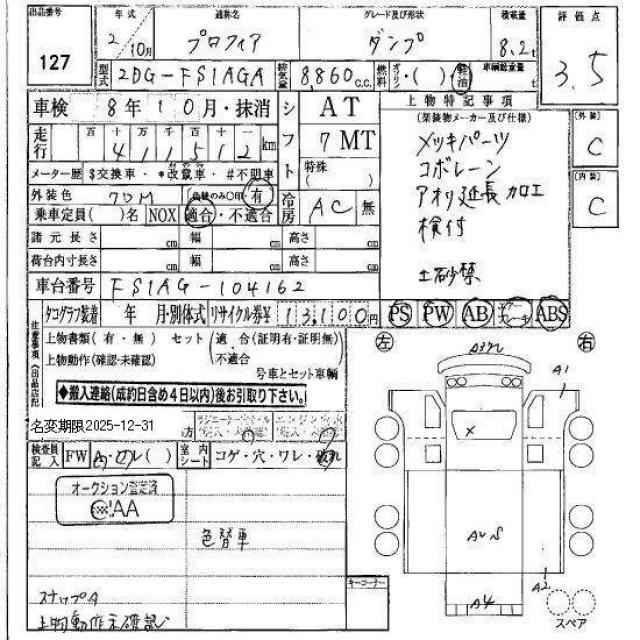 出品番号 年式 通称名 グレード及び形状 積載量 評価点
127 2/10月 プロフィア ダンプ 8.2t 3.5
型式 2DG-FS1AGA 排気量 8860c.c. 燃料 ガソリン・( )・軽油 車輌総重量 t
車検 8年10月・抹消 シフト AT 上物特記事項 [外装]
走行 百 十 万 千 百 十 一 411512km 7MT (架装物メーカー及び仕様) C
メーター歴 $交換車・*改竄車・#不明車 特殊( ) メッキパーツ
コボレーン [内装]
外装色 7DM (色替のみ○印・有) 冷房 AC 無 アオリ延長加工 C
乗車定員( )名 NOX 適合・不適合 検付
諸元長さ cm 幅 cm 高さ cm
荷台内寸長さ cm 幅 cm 高さ cm
車台番号 FS1AG-104162 土砂禁
タコグラフ装着 年 月・別体式 リサイクル券¥ 13,100円 PS PW AB ABS
注意事項(出品店記
上物書類(有・無) セット(適合(証明有・証明無) 左 右
上物動作(確認・未確認) ・不適合
号車とセット車輌
◆搬入連絡(成約日含め4日以内)後お引取り下さい。
名変期限2025-12-31
検査員記入 FW ( ) 室内シート コゲ・穴・ワレ・破れ
オークション登録済
AA
色替車
スナップA
上物動作未確認
キーコーナー
A1
×
A2
A4
スペア